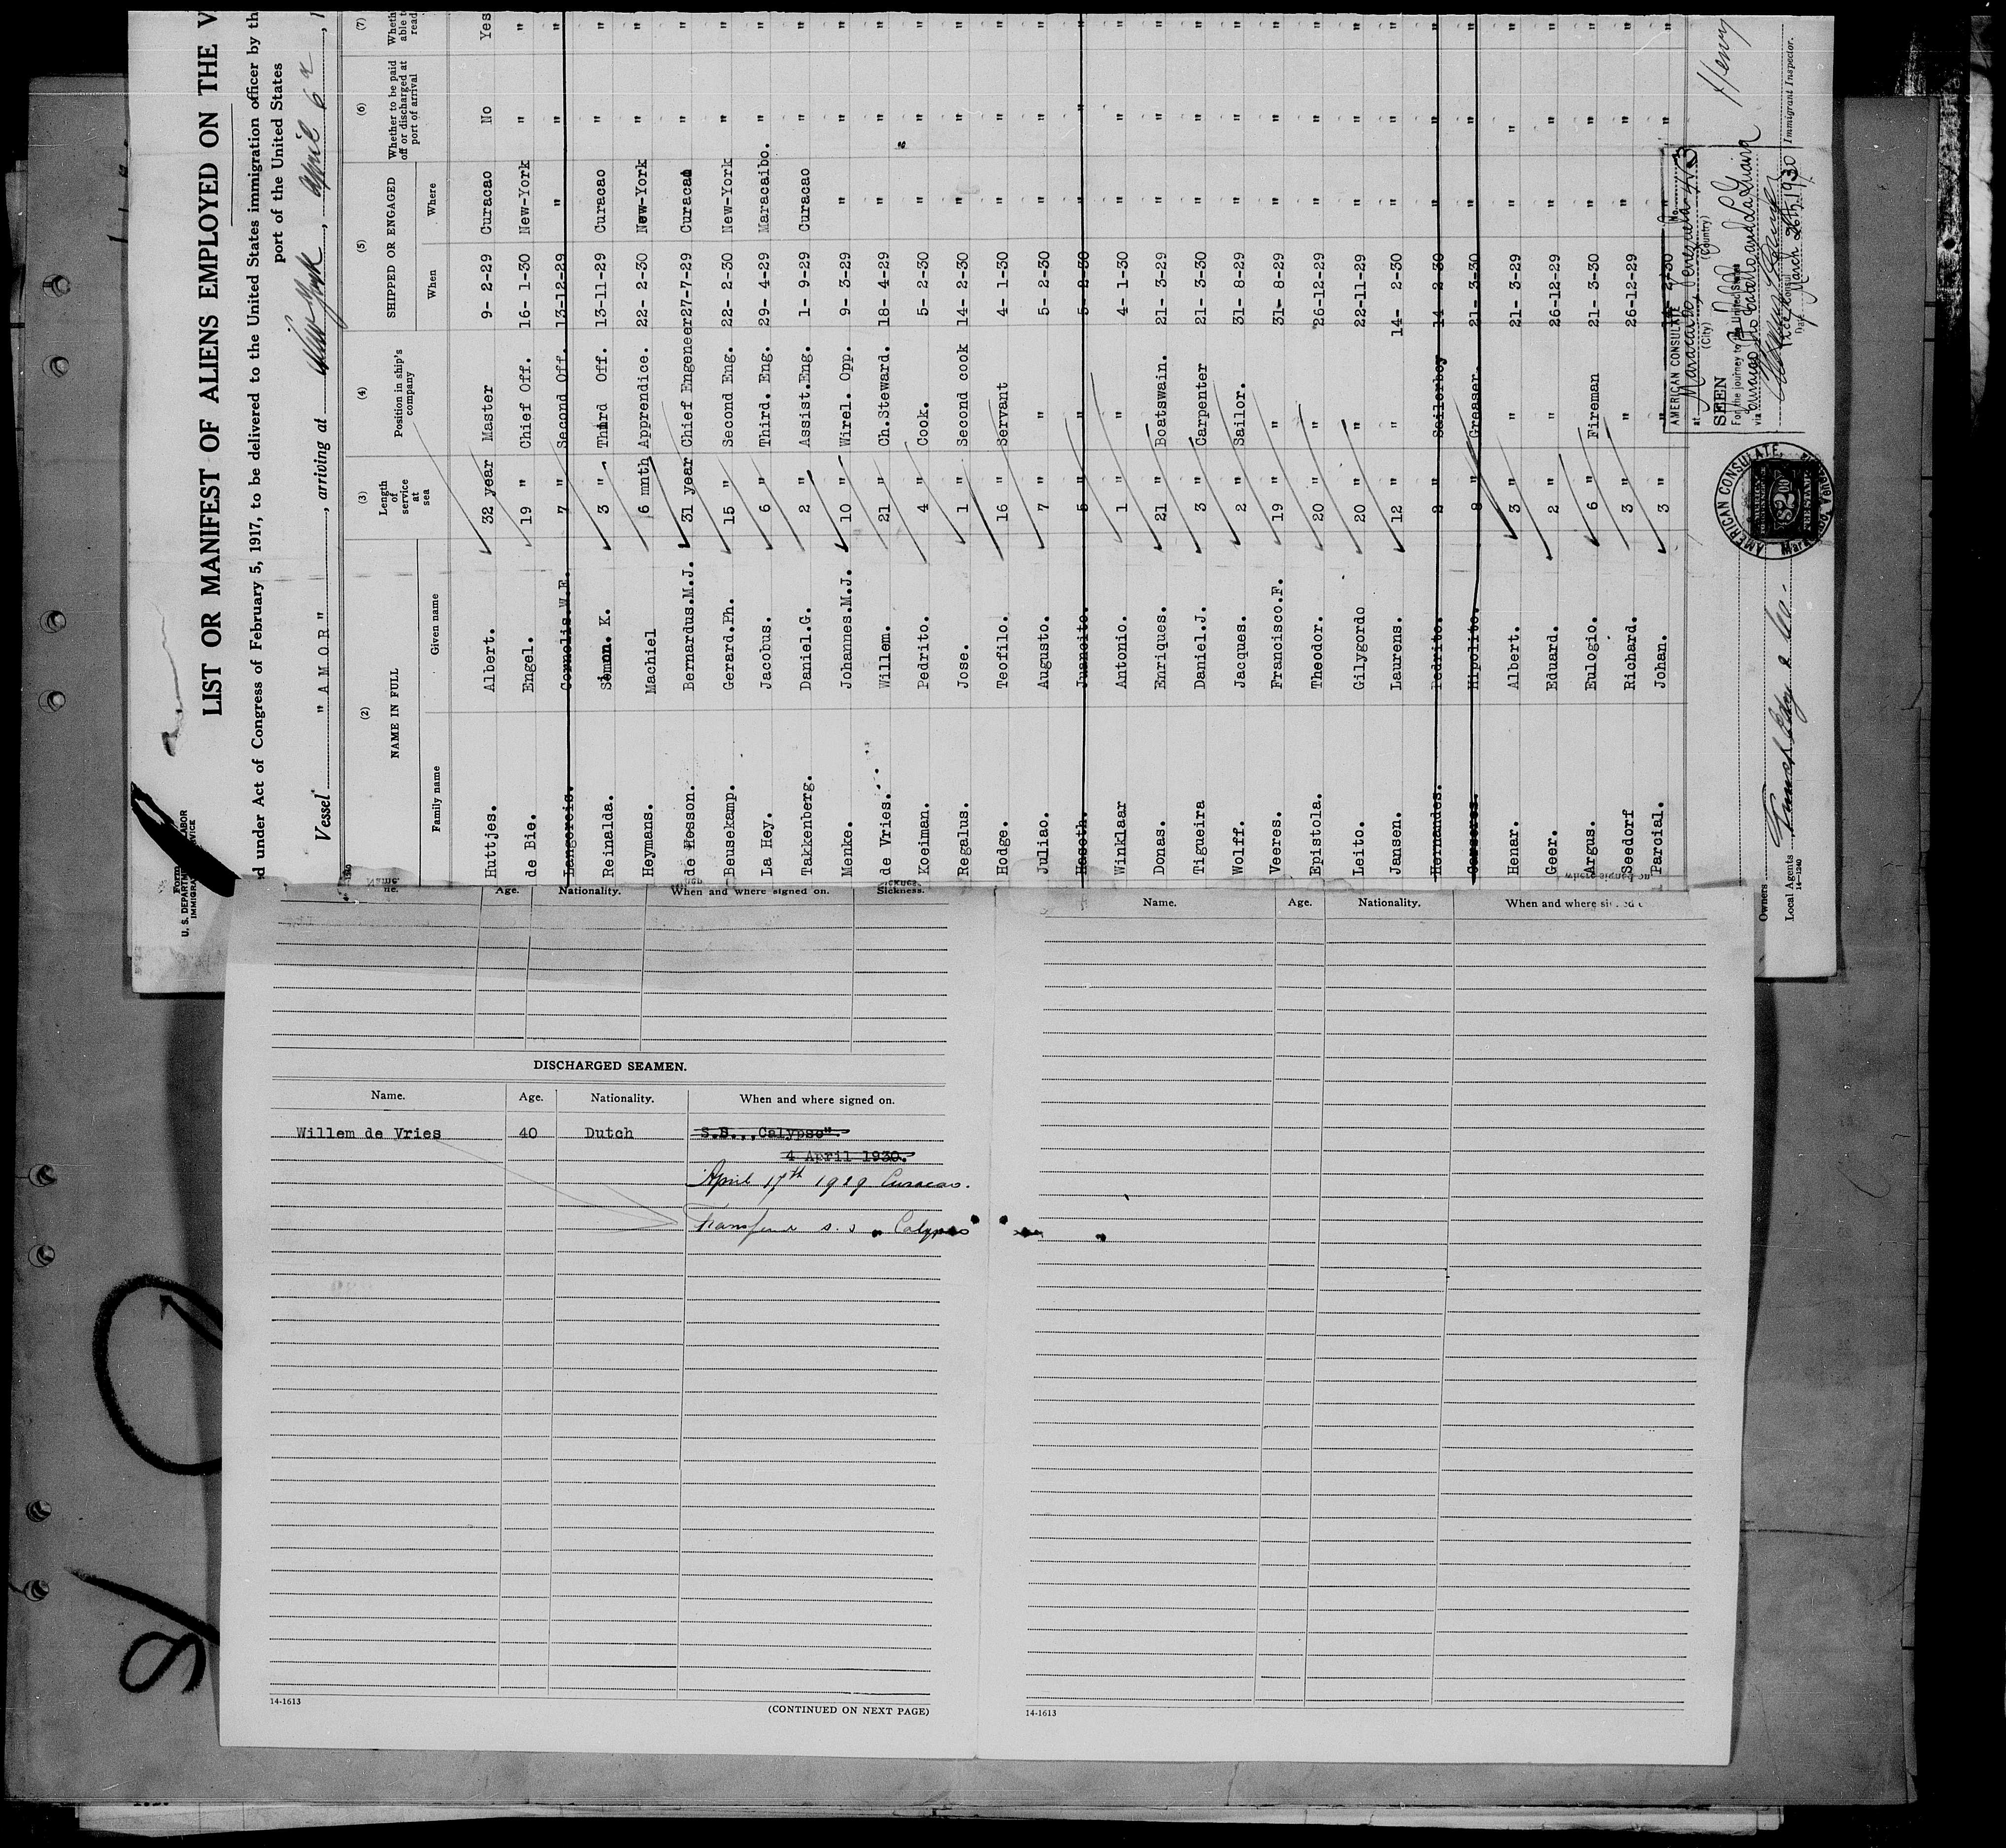 U. S. DEPARTMENT LABOR
LIST OR MANIFEST OF ALIENS EMPLOYED ON THE V
d under Act of Congress of February 5, 1917, to be delivered to the United States immigration officer by th
port of the United States
Vessel " A M O R ", arriving at New York, April 6
(2) (3) (4) (5) (6) (7)
NAME IN FULL Length of service at sea Position in ship's company SHIPPED OR ENGAGED Whether to be paid off or discharged at port of arrival Wheth able to read
Family name Given name When Where
Huttjes. Albert. 32 year Master 9- 2-29 Curacao No Yes
de Bie. Engel. 19 " Chief Off. 16- 1-30 New-York " "
Langereis. Cornelis.W.F. 7 " Second Off. 13-12-29 " " "
Reinalda. Simon. K. 3 " Third Off. 13-11-29 Curacao " "
Heymans. Machiel 6 mnth Apprendice. 22- 2-30 New-York " "
de Hosson. Bernardus.M.J. 31 year Chief Engeneer 27-7-29 Curacao " "
Beusekamp. Gerard.Ph. 15 " Second Eng. 22- 2-30 New-York " "
La Hey. Jacobus. 6 " Third. Eng. 29- 4-29 Maracaibo. " "
Takkenberg. Daniel.G. 2 " Assist.Eng. 1- 9-29 Curacao " "
Menke. Johannes.M.J. 10 " Wirel. Opp. 9- 3-29 " " "
de Vries. Willem. 21 " Ch.Steward. 18- 4-29 " " "
Koeiman. Pedrito. 4 " Cook. 5- 2-30 " " "
Regalus. Jose. 1 " Second cook 14- 2-30 " " "
Hodge. Teofilo. 16 " Servant 4- 1-30 " " "
Juliao. Augusto. 7 " " 5- 2-30 " " "
Haseth. Juancito. 5 " " 5- 2-30 " " "
Winklaar Antonio. 1 " " 4- 1-30 " " "
Donas. Enriques. 21 " Boatswain. 21- 3-29 " " "
Tigueira Daniel.J. 3 " Carpenter 21- 3-30 " " "
Wolff. Jacques. 2 " Sailor. 31- 8-29 " " "
Veeres. Francisco.F. 19 " " 31- 8-29 " " "
Epistola. Theodor. 20 " " 26-12-29 " " "
Leito. Gilygordo 20 " " 22-11-29 " " "
Jansen. Laurens. 12 " " 14- 2-30 " " "
Hernandes. Pedrito. 2 " Sailorboy 14- 2-30 " " "
Hipolito. 8 " Greaser. 21- 3-30 " " "
Henar. Albert. 3 " " 21- 3-29 " " "
Geer. Eduard. 2 " " 26-12-29 " " "
Argus. Eulogio. 6 " Fireman 21- 3-30 " " "
Seedorf Richard. 3 " " 26-12-29 " " "
Parcial. Johan. 3 " " 14- 2-30 " " "
AMERICAN CONSULATE No.
at Maracaibo, Venezuela
(City) (Country)
SEEN
For the journey to the United States
via Curacao Pto Cabello and La Guaira
Vice Consul
Date March 26th, 1930
AMERICAN CONSULATE
$2.00
FEE STAMP
Henry
Immigrant Inspector.
Owners
Local Agents Funch Edye & Co.
14-1240
Age. Nationality. When and where signed on. Sickness.
DISCHARGED SEAMEN.
Name. Age. Nationality. When and where signed on.
Willem de Vries 40 Dutch S.S.,,Calypso".
4 April 1930.
April 17th 1929 Curacao.
s.s „ Calypso
14-1613
(CONTINUED ON NEXT PAGE)
Name. Age. Nationality. When and where signed
14-1613